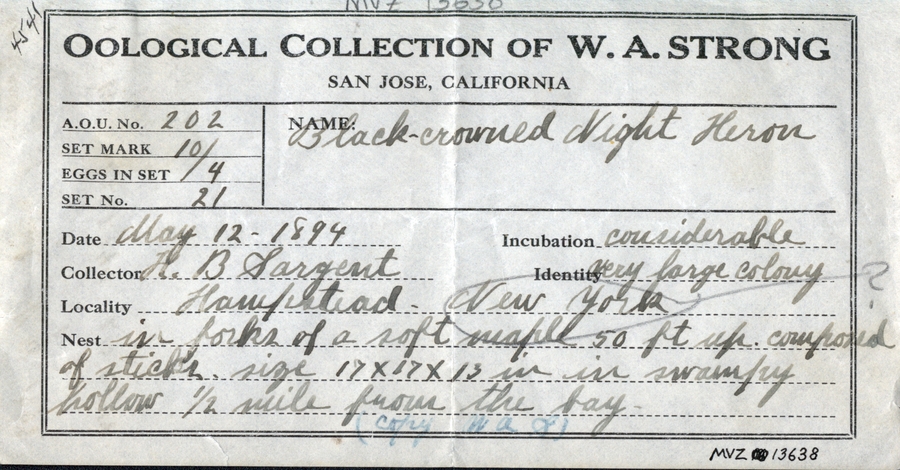 MVZ 13638
4541
OOLOGICAL COLLECTION OF W. A. STRONG
SAN JOSE, CALIFORNIA
A.O.U. No. 202
SET MARK 10/
EGGS IN SET /4
SET No. 21
NAME. Black-crowned Night Heron
Date May 12 - 1894
Incubation considerable
Collector H. B Sargent
Identity very large colony ?
Locality Hampstead - New York
Nest in forks of a soft maple 50 ft up. composed
of sticks. size 17 x 17 x 13 in in swampy
hollow 1/2 mile from the bay.
(copy W A S)
MVZ 13638